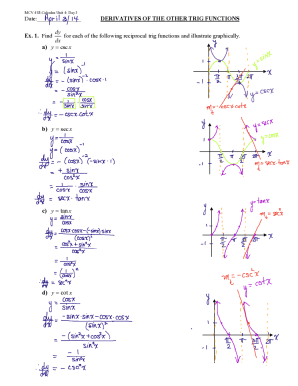 MCV 4UI-Calculus Unit 4: Day 3
Date: April 3/14
DERIVATIVES OF THE OTHER TRIG FUNCTIONS
Ex. 1. Find dy/dx for each of the following reciprocal trig functions and illustrate graphically.
a) y = csc x
y = 1/sinx
y = (sinx)⁻¹
dy/dx = -(sinx)⁻² cosx·1
= -cosx/sin²x
= -1/sinx · cosx/sinx
∴ dy/dx = -cscx cotx
y=sinx
y=cscx
m = -cscx cotx
b) y = sec x
y = 1/cosx
y = (cosx)⁻¹
dy/dx = -(cosx)⁻² (-sinx·1)
= +sinx/cos²x
= 1/cosx · sinx/cosx
∴ dy/dx = secx·tanx
y=secx
y=cosx
m = secx·tanx
c) y = tan x
y = sinx/cosx
dy/dx = cosx·cosx-(-sinx)sinx/(cosx)²
= cos²x+sin²x/cos²x
= 1/cos²x
= (1/cosx)²
∴ dy/dx = sec²x
y=tanx
m = sec²x
d) y = cot x
y = cosx/sinx
dy/dx = -sinx·sinx-cosx·cosx/(sinx)²
= -(sin²x+cos²x)/sin²x
= -1/sin²x
∴ dy/dx = -csc²x
m = -csc²x
y=cotx